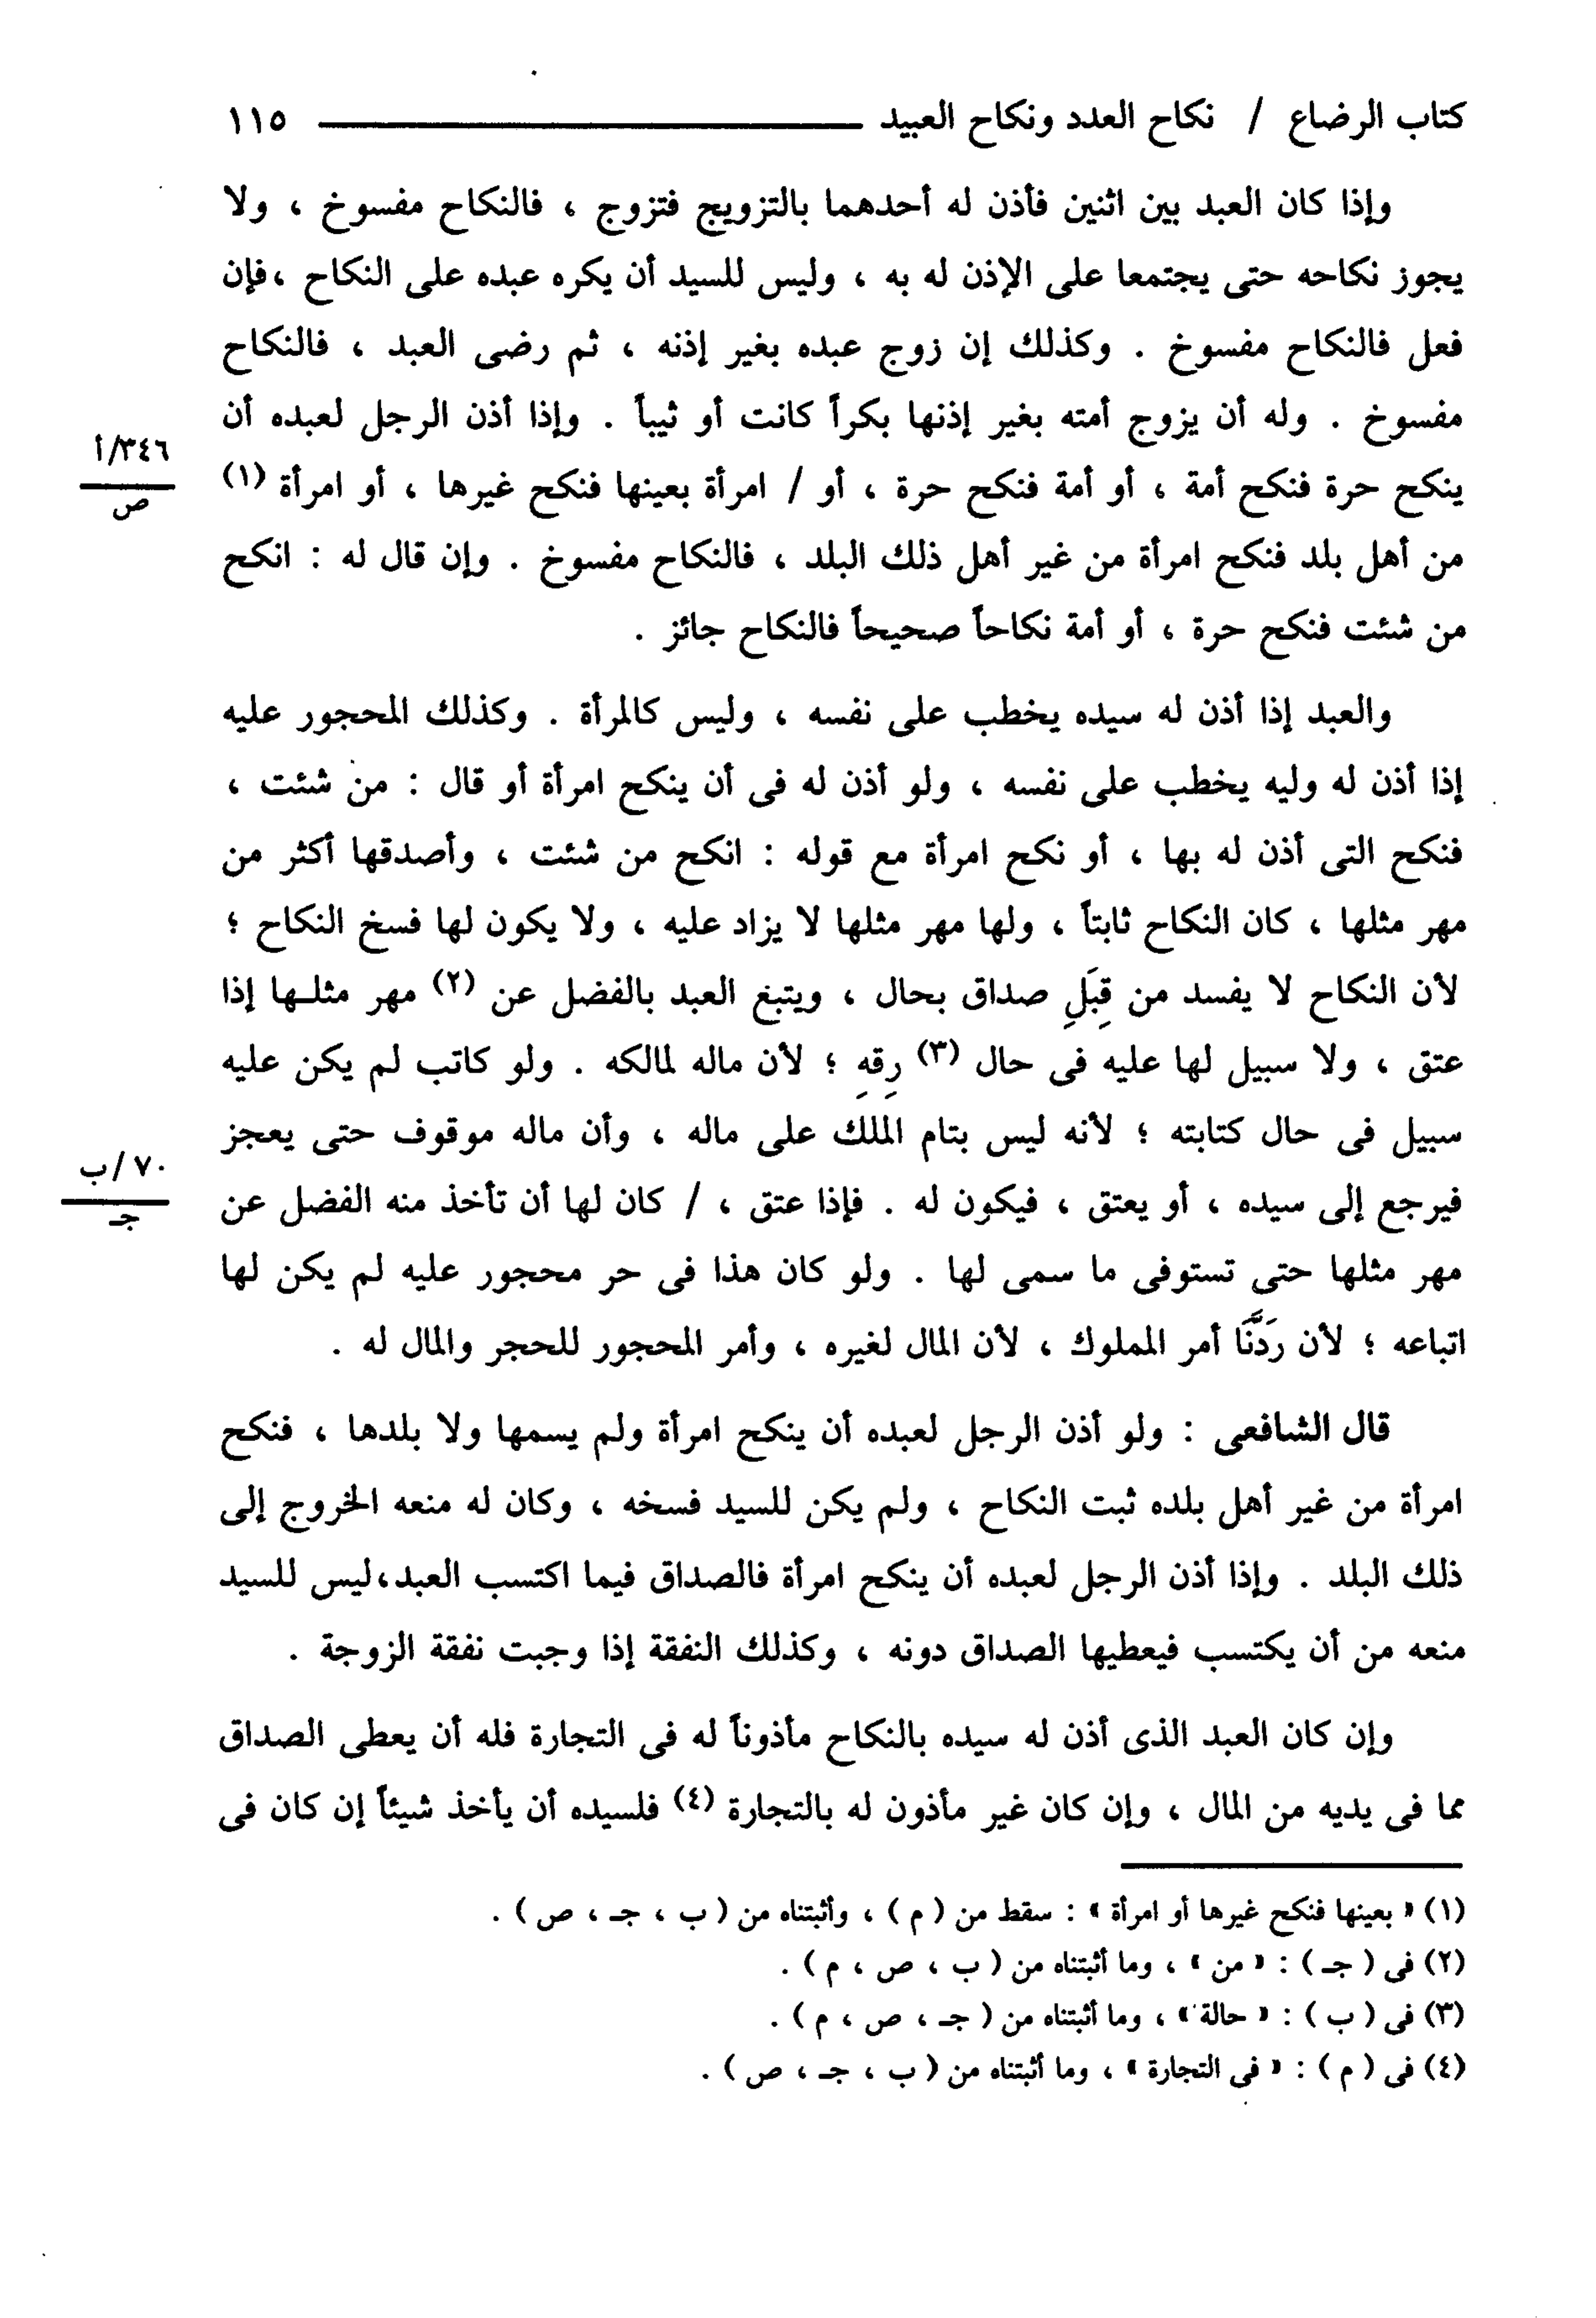 كتاب الرضاع / نكاح العدد ونكاح العبيد ١١٥
وإذا كان العبد بين اثنين فأذن له أحدهما بالتزويج فتزوج ، فالنكاح مفسوخ ، ولا
يجوز نكاحه حتى يجتمعا على الإذن له به ، وليس للسيد أن يكره عبده على النكاح ،فإن
فعل فالنكاح مفسوخ . وكذلك إن زوج عبده بغير إذنه ، ثم رضى العبد ، فالنكاح
مفسوخ . وله أن يزوج أمته بغير إذنها بكراً كانت أو ثيباً . وإذا أذن الرجل لعبده أن
٣٤٦/أ
ص
ينكح حرة فنكح أمة ، أو أمة فنكح حرة ، أو / امرأة بعينها فنكح غيرها ، أو امرأة (١)
من أهل بلد فنكح امرأة من غير أهل ذلك البلد ، فالنكاح مفسوخ . وإن قال له : انكح
من شئت فنكح حرة ، أو أمة نكاحاً صحيحاً فالنكاح جائز .
والعبد إذا أذن له سيده يخطب على نفسه ، وليس كالمرأة . وكذلك المحجور عليه
إذا أذن له وليه يخطب على نفسه ، ولو أذن له فى أن ينكح امرأة أو قال : من شئت ،
فنكح التى أذن له بها ، أو نكح امرأة مع قوله : انكح من شئت ، وأصدقها أكثر من
مهر مثلها ، كان النكاح ثابتاً ، ولها مهر مثلها لا يزاد عليه ، ولا يكون لها فسخ النكاح ؛
لأن النكاح لا يفسد من قِبَلِ صداق بحال ، ويتبغ العبد بالفضل عن (٢) مهر مثلـها إذا
عتق ، ولا سبيل لها عليه فى حال (٣) رِقهِ ؛ لأن ماله لمالكه . ولو كاتب لم يكن عليه
سبيل فى حال كتابته ؛ لأنه ليس بتام الملك على ماله ، وأن ماله موقوف حتى يعجز
٧٠/ب
جـ
فيرجع إلى سيده ، أو يعتق ، فيكون له . فإذا عتق ، / كان لها أن تأخذ منه الفضل عن
مهر مثلها حتى تستوفى ما سمى لها . ولو كان هذا فى حر محجور عليه لم يكن لها
اتباعه ؛ لأن رَدَّنَا أمر المملوك ، لأن المال لغيره ، وأمر المحجور للحجر والمال له .
قال الشافعى : ولو أذن الرجل لعبده أن ينكح امرأة ولم يسمها ولا بلدها ، فنكح
امرأة من غير أهل بلده ثبت النكاح ، ولم يكن للسيد فسخه ، وكان له منعه الخروج إلى
ذلك البلد . وإذا أذن الرجل لعبده أن ينكح امرأة فالصداق فيما اكتسب العبد،ليس للسيد
منعه من أن يكتسب فيعطيها الصداق دونه ، وكذلك النفقة إذا وجبت نفقة الزوجة .
وإن كان العبد الذى أذن له سيده بالنكاح مأذوناً له فى التجارة فله أن يعطى الصداق
مما فى يديه من المال ، وإن كان غير مأذون له بالتجارة (٤) فلسيده أن يأخذ شيئاً إن كان فى
(١) « بعينها فنكح غيرها أو امرأة » : سقط من ( م ) ، وأثبتناه من ( ب ، جـ ، ص ) .
(٢) فى ( جـ ) : « من » ، وما أثبتناه من ( ب ، ص ، م ) .
(٣) فى ( ب ) : « حالة » ، وما أثبتناه من ( جـ ، ص ، م ) .
(٤) فى ( م ) : « فى التجارة » ، وما أثبتناه من ( ب ، جـ ، ص ) .